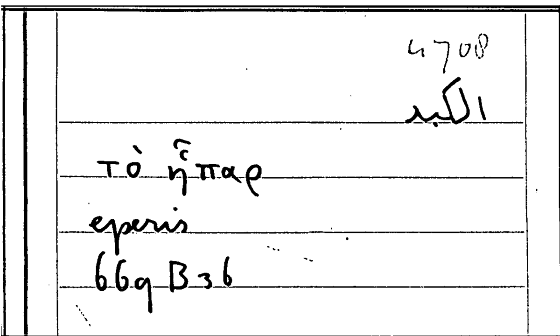 4708
الكبد
τὸ ἧπαρ
eperis
669 B 36